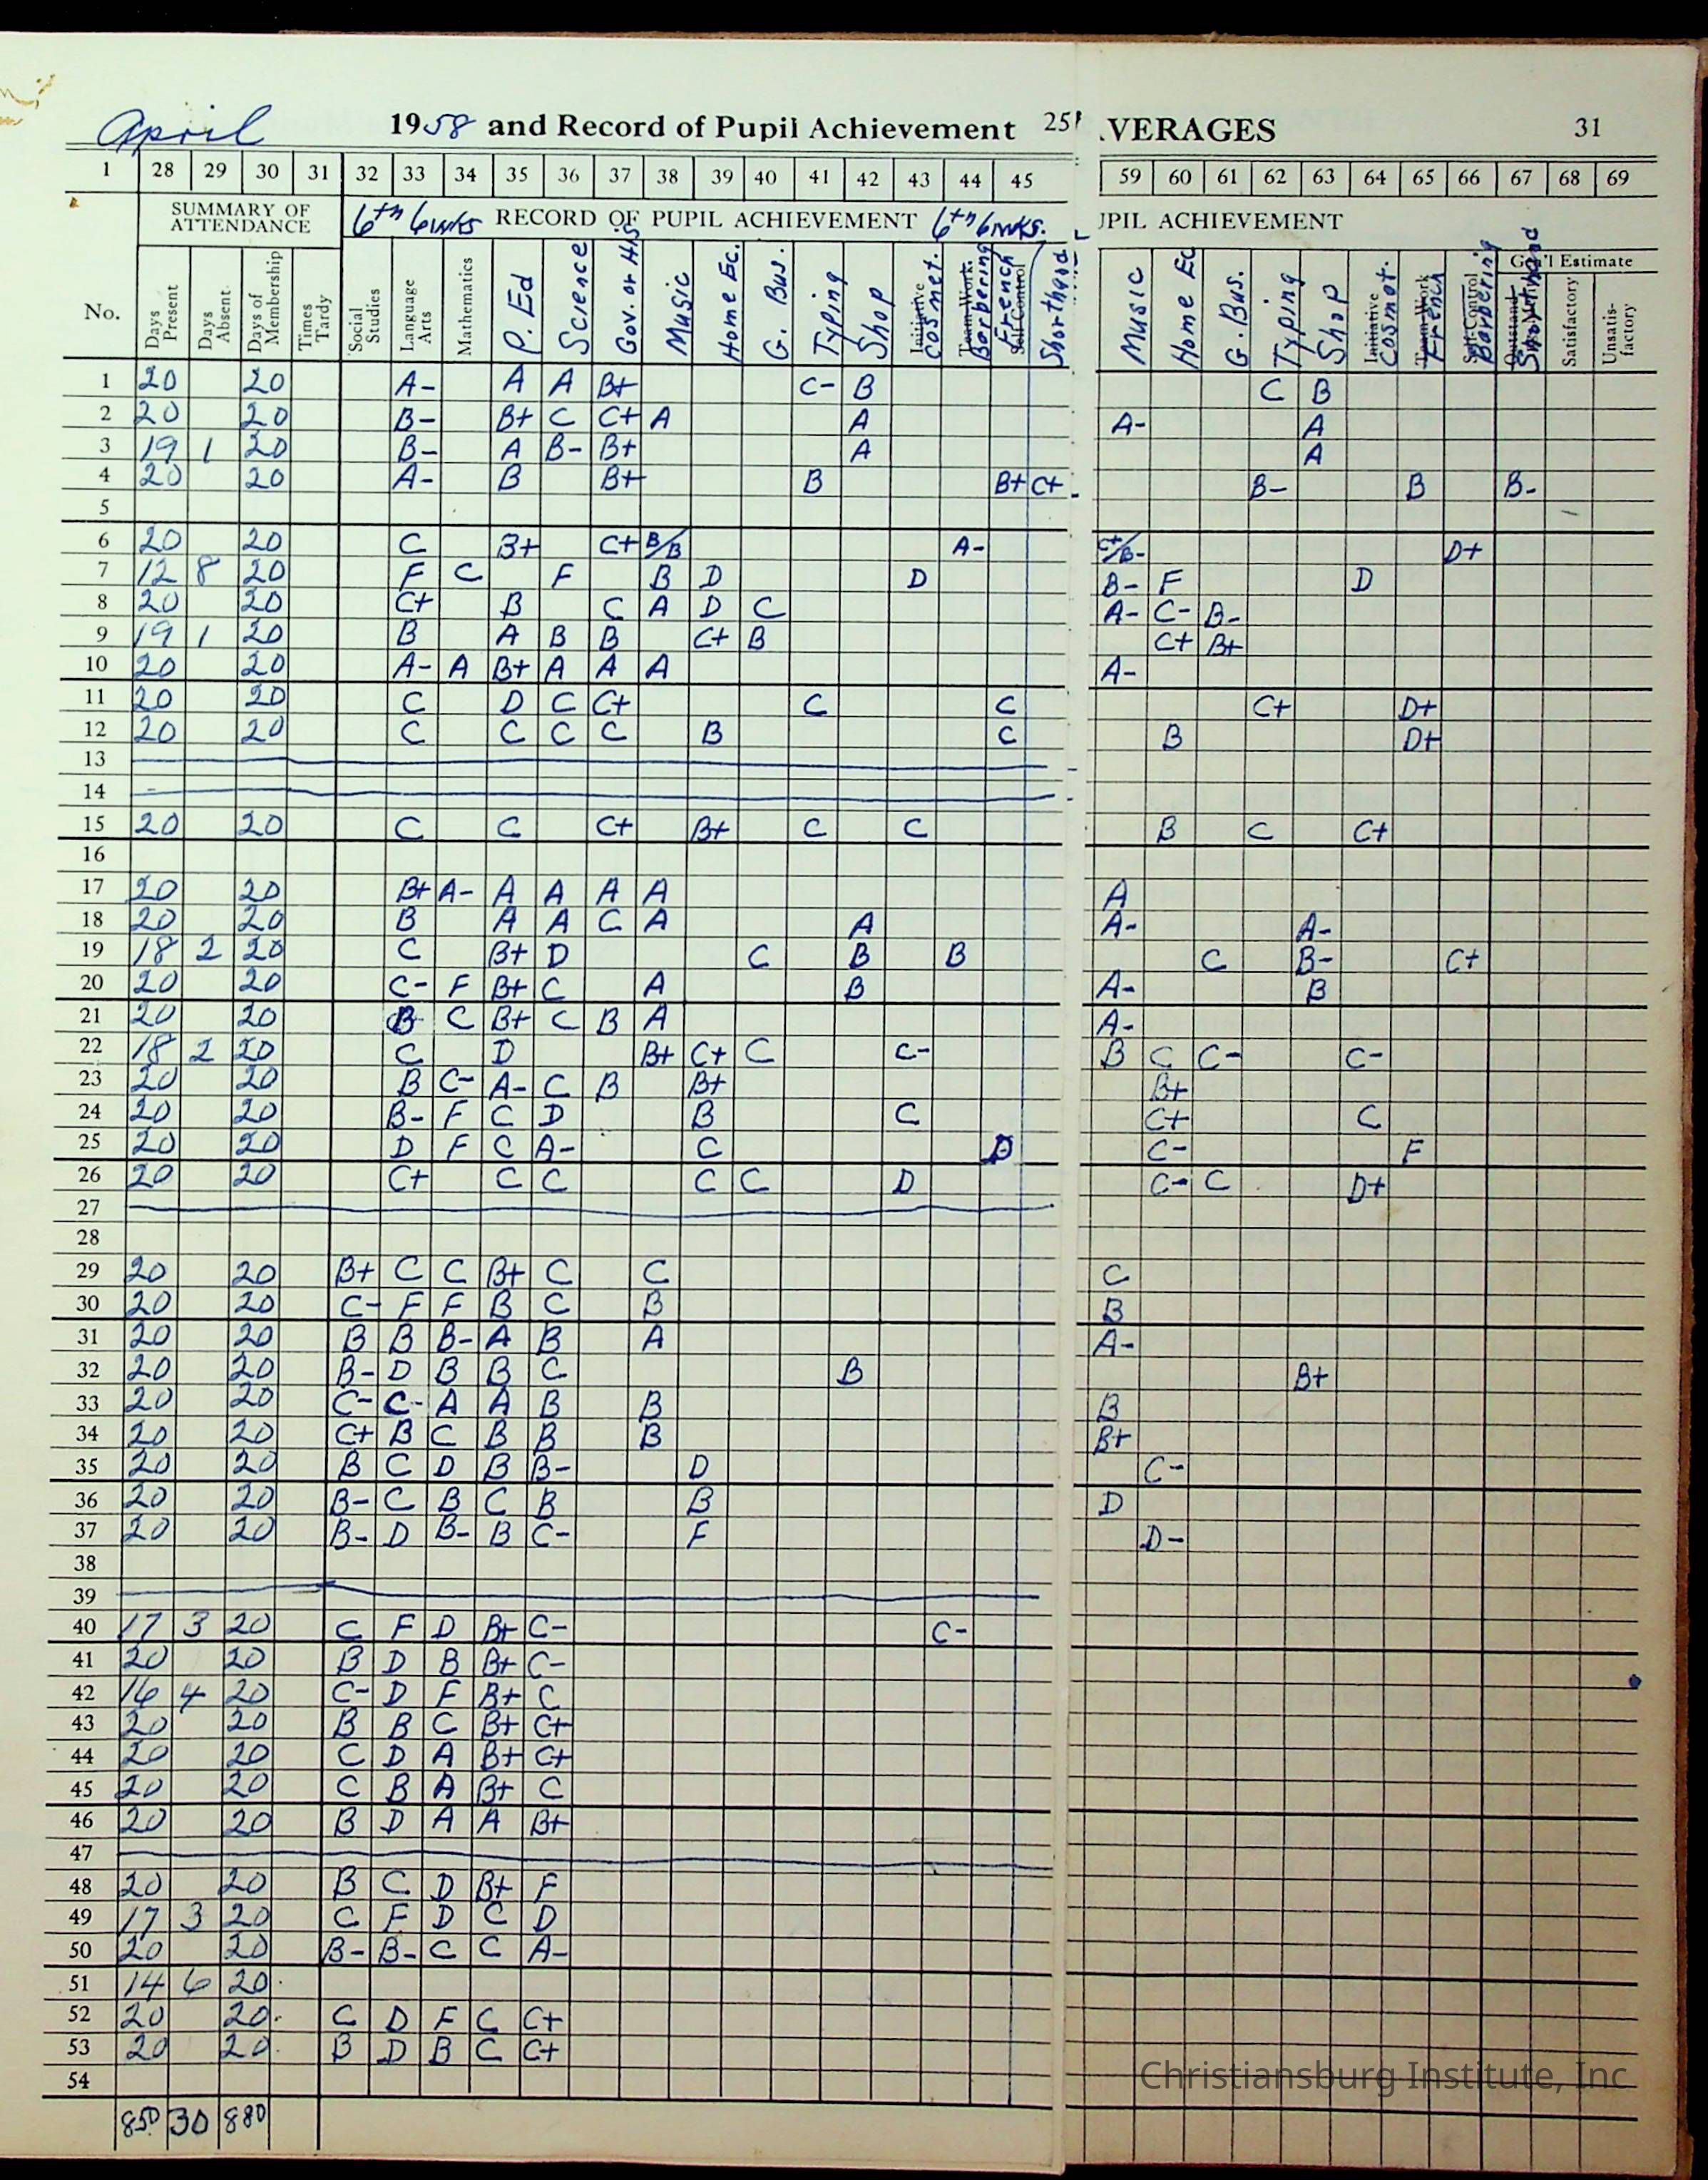 April 1958 and Record of Pupil Achievement 25 AVERAGES 31
1 28 29 30 31 32 33 34 35 36 37 38 39 40 41 42 43 44 45 59 60 61 62 63 64 65 66 67 68 69
SUMMARY OF ATTENDANCE 6th 6wks RECORD OF PUPIL ACHIEVEMENT 6th 6wks. UPIL ACHIEVEMENT
Gen'l Estimate
No. Days Present Days Absent Days of Membership Times Tardy Social Studies Language Arts Mathematics P. Ed Science Gov. or His Music Home Ec. G. Bus. Typing Shop Initiative Cosmet. Team Work Barbering French Self Control Shorthand Music Home Ec G. Bus. Typing Shop Initiative Cosmet. Team Work French Self Control Barbering Shorthand Satisfactory Unsatis-factory
1 20 20 A- A A B+ C- B C B
2 20 20 B- B+ C C+ A A A- A
3 19 1 20 B- A B- B+ A A
4 20 20 A- B B+ B B+ C+ B- B B-
5
6 20 20 C B+ C+ B/B A- C+/B- D+
7 12 8 20 F C F B D D B- F D
8 20 20 C+ B C A D C A- C- B-
9 19 1 20 B A B B C+ B C+ B+
10 20 20 A- A B+ A A A A-
11 20 20 C D C C+ C C C+ D+
12 20 20 C C C C B C B D+
13
14
15 20 20 C C C+ B+ C C B C C+
16
17 20 20 B+ A- A A A A A
18 20 20 B A A C A A A- A-
19 18 2 20 C B+ D C B B C B- C+
20 20 20 C- F B+ C A B A- B
21 20 20 B C B+ C B A A-
22 18 2 20 C D B+ C+ C C- B C C- C-
23 20 20 B C- A- C B B+ B+
24 20 20 B- F C D B C C+ C
25 20 20 D F C A- C D C- F
26 20 20 C+ C C C C D C- C D+
27
28
29 20 20 B+ C C B+ C C C
30 20 20 C- F F B C B B
31 20 20 B B B- A B A A-
32 20 20 B- D B B C B B+
33 20 20 C- C- A A B B B
34 20 20 C+ B C B B B B+
35 20 20 B C D B B- D C-
36 20 20 B- C B C B B D
37 20 20 B- D B- B C- F D-
38
39
40 17 3 20 C F D B+ C- C-
41 20 20 B D B B+ C-
42 16 4 20 C- D F B+ C
43 20 20 B B C B+ C+
44 20 20 C D A B+ C+
45 20 20 C B A B+ C
46 20 20 B D A A B+
47
48 20 20 B C D B+ F
49 17 3 20 C F D C D
50 20 20 B- B- C C A-
51 14 6 20
52 20 20 C D F C C+
53 20 20 B D B C C+
54
850 30 880
Christiansburg Institute, Inc